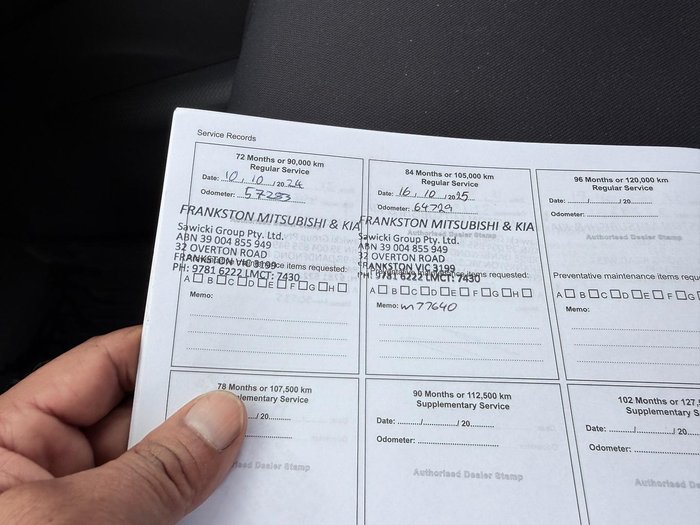 Service Records
72 Months or 90,000 km
Regular Service
Date: 10/10/2024
Odometer: 57283
FRANKSTON MITSUBISHI & KIA
Sawicki Group Pty. Ltd.
ABN 39 004 855 949
32 OVERTON ROAD
FRANKSTON VIC 3199
PH: 9781 6222 LMCT: 7430
items requested:
A B C D E F G H
Memo:
84 Months or 105,000 km
Regular Service
Date: 16/10/2025
Odometer: 64729
FRANKSTON MITSUBISHI & KIA
Sawicki Group Pty. Ltd.
ABN 39 004 855 949
32 OVERTON ROAD
FRANKSTON VIC 3199
PH: 9781 6222 LMCT: 7430
items requested:
A B C D E F G H
Memo: m77640
96 Months or 120,000 km
Regular Service
Date: ......./......./20.......
Odometer:
Authorised Dealer Stamp
Preventative maintenance items requested:
A B C D E F G
Memo:
78 Months or 107,500 km
Service
/20
Dealer Stamp
90 Months or 112,500 km
Supplementary Service
Date: ......./......./20.......
Odometer:
Authorised Dealer Stamp
102 Months or 127,
Supplementary S
Date: ......./......./20
Odometer:
Authorised De